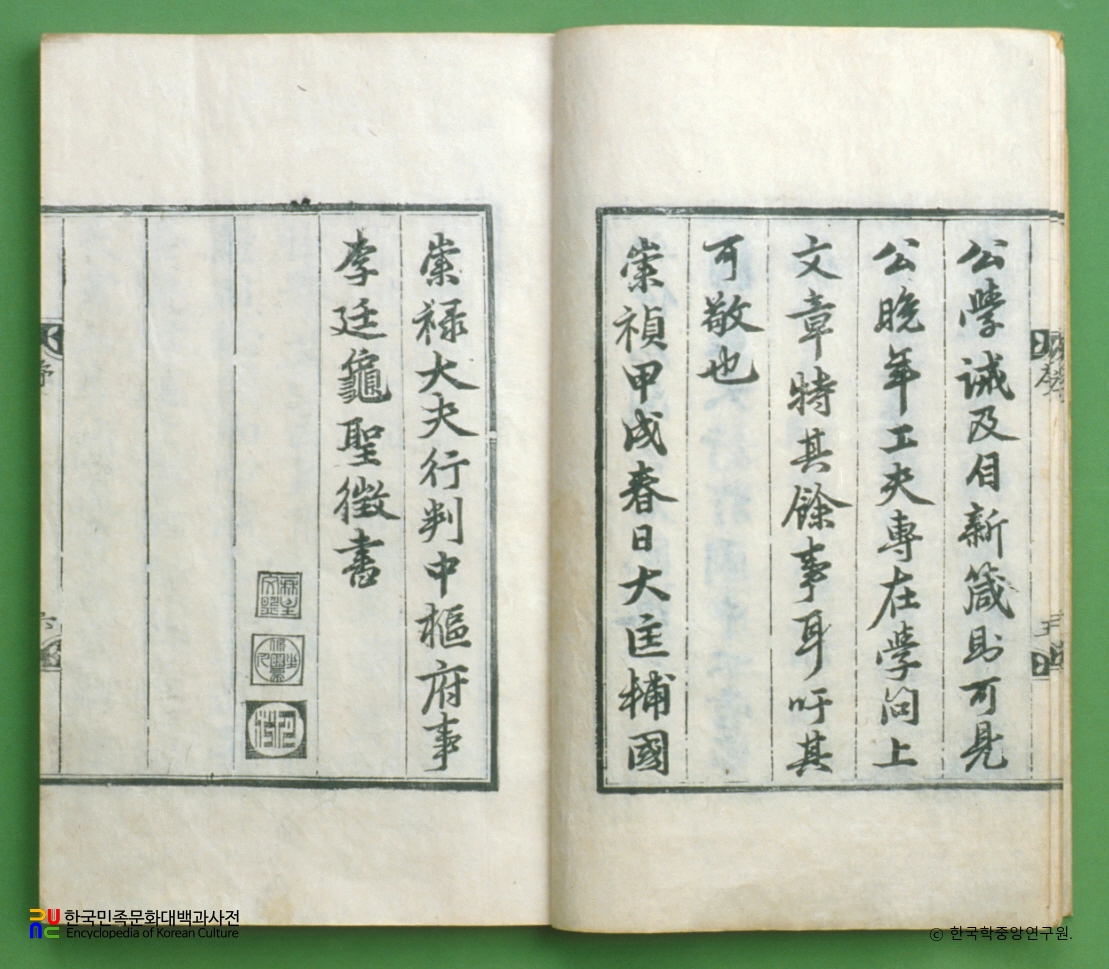 公學誡及日新箴則可見
公晚年工夫專在學問上
文章特其餘事耳吁其
可敬也
崇禎甲戌春日大匡輔國
崇祿大夫行判中樞府事
李廷龜聖徵書
序
한국민족문화대백과사전
Encyclopedia of Korean Culture
© 한국학중앙연구원.